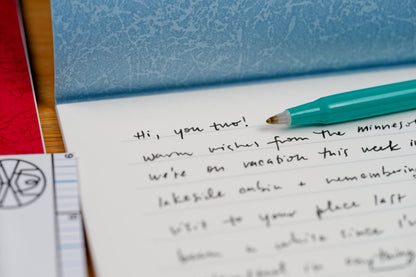 Hi, you two!
warm wishes from the Minnesot
we're on vacation this week i
lakeside cabin + remembering
visit to your place last
been a while since I'
in anything